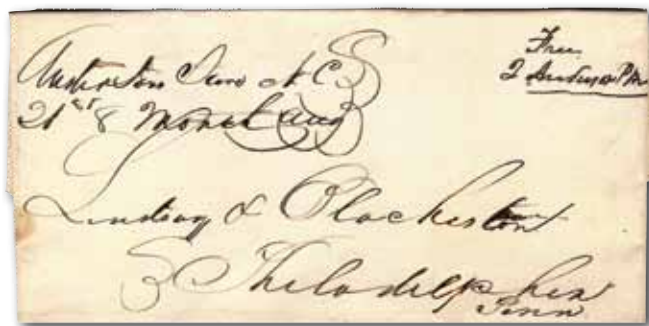 Andersons Store N C
21st 8 Month Aug
Free
Anderson P M
Lindsay & Blackiston
Philadelphia
Penn